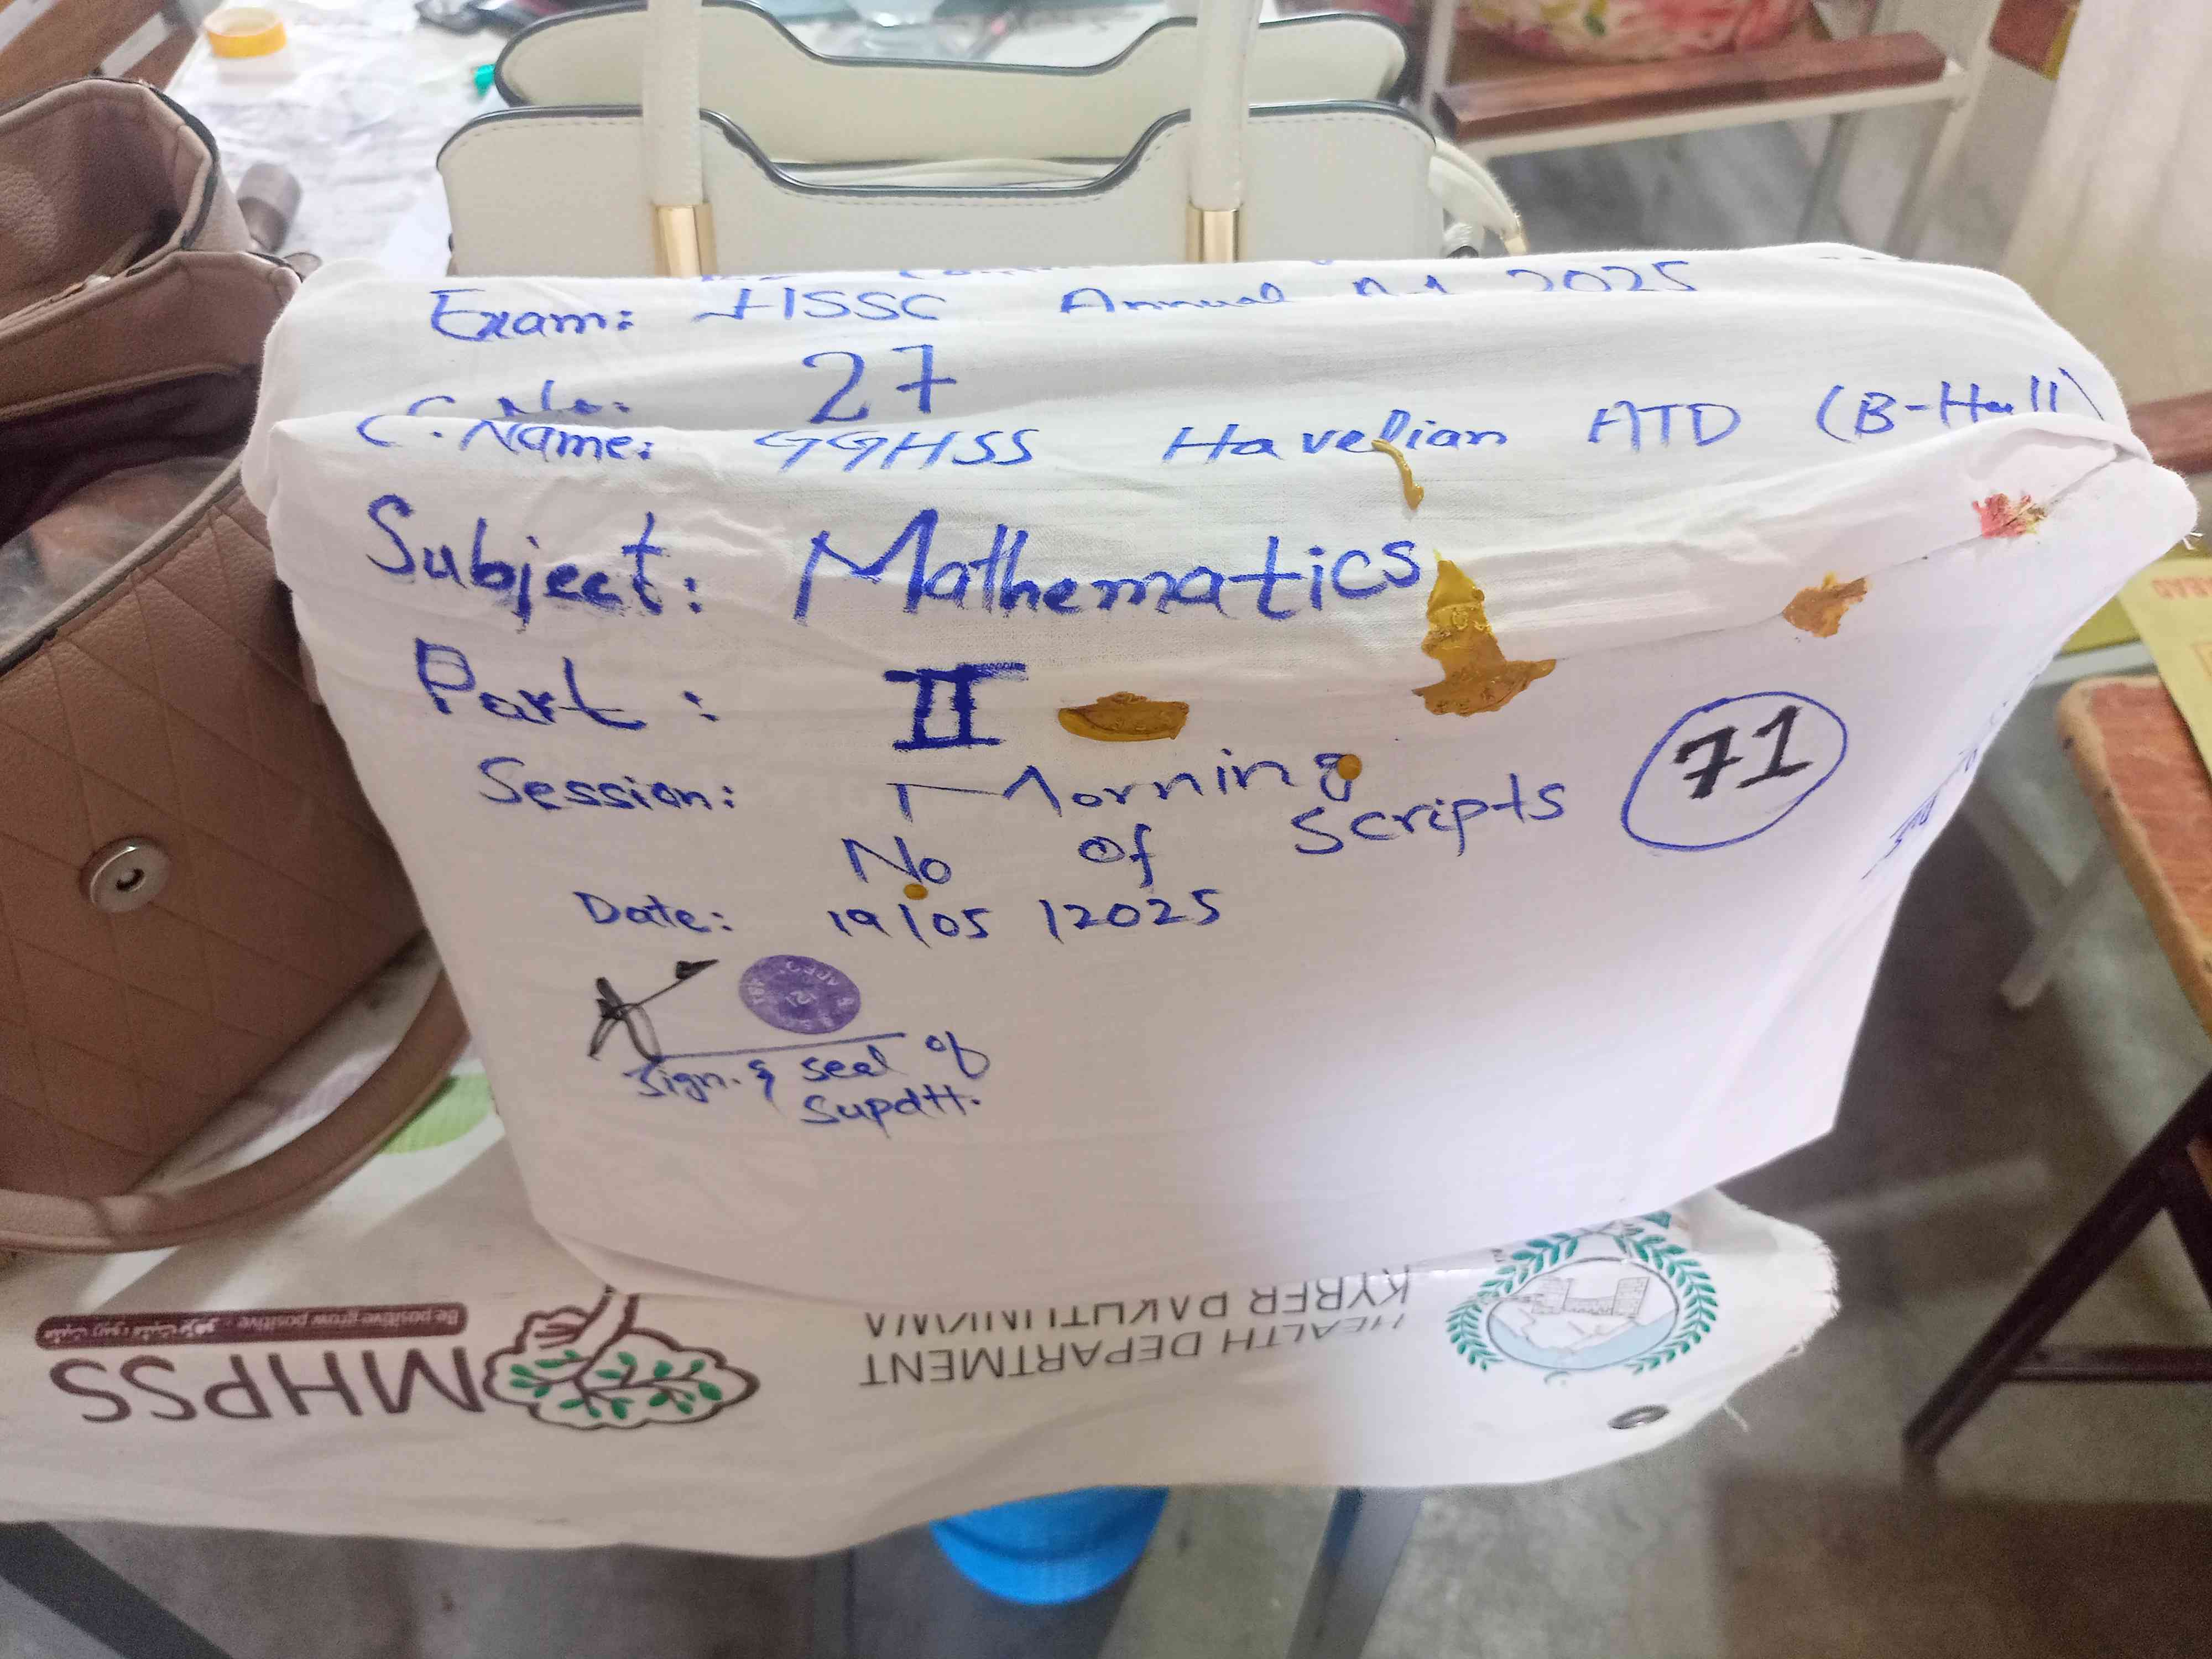 Exam: HSSC Annual 2025
C. No: 27
C. Name: GGHSS Havelian ATD (B-Hall)
Subject: Mathematics
Part: II
Session: Morning
No of Scripts 71
Date: 19/05/2025
Sign. & seal of
Supdtt.
MHPSS
Be positive grow positive
HEALTH DEPARTMENT
KYBER PAKUTUNKWA